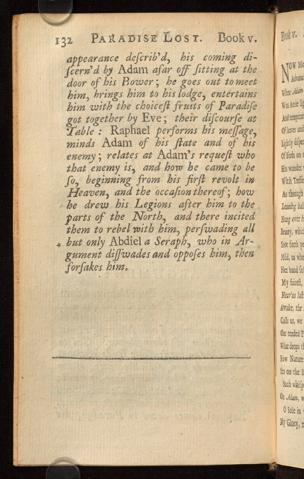 132 PARADISE LOST. Book v.
appearance describ'd, his coming di-
scern'd by Adam afar off ſitting at the
door of his Bower; he goes out to meet
him, brings him to his lodge, entertains
him with the choiceſt fruits of Paradiſe
got together by Eve; their diſcourſe at
Table: Raphael performs his meſſage,
minds Adam of his ſtate and of his
enemy; relates at Adam's requeſt who
that enemy is, and how he came to be
ſo, beginning from his firſt revolt in
Heaven, and the occaſion thereof; how
he drew his Legions after him to the
parts of the North, and there incited
them to rebel with him, perſwading all
but only Abdiel a Seraph, who in Ar-
gument diſſwades and oppoſes him, then
forſakes him.
Book v.
NOW